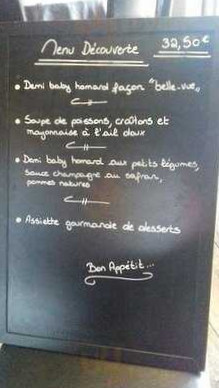 Menu Découverte 32,50€
• Demi baby homard façon "belle-vue"
• Soupe de poissons, croûtons et
mayonnaise à l'ail doux
• Demi baby homard aux petits légumes,
sauce champagne au safran,
pommes natures
• Assiette gourmande de desserts
Bon Appétit...